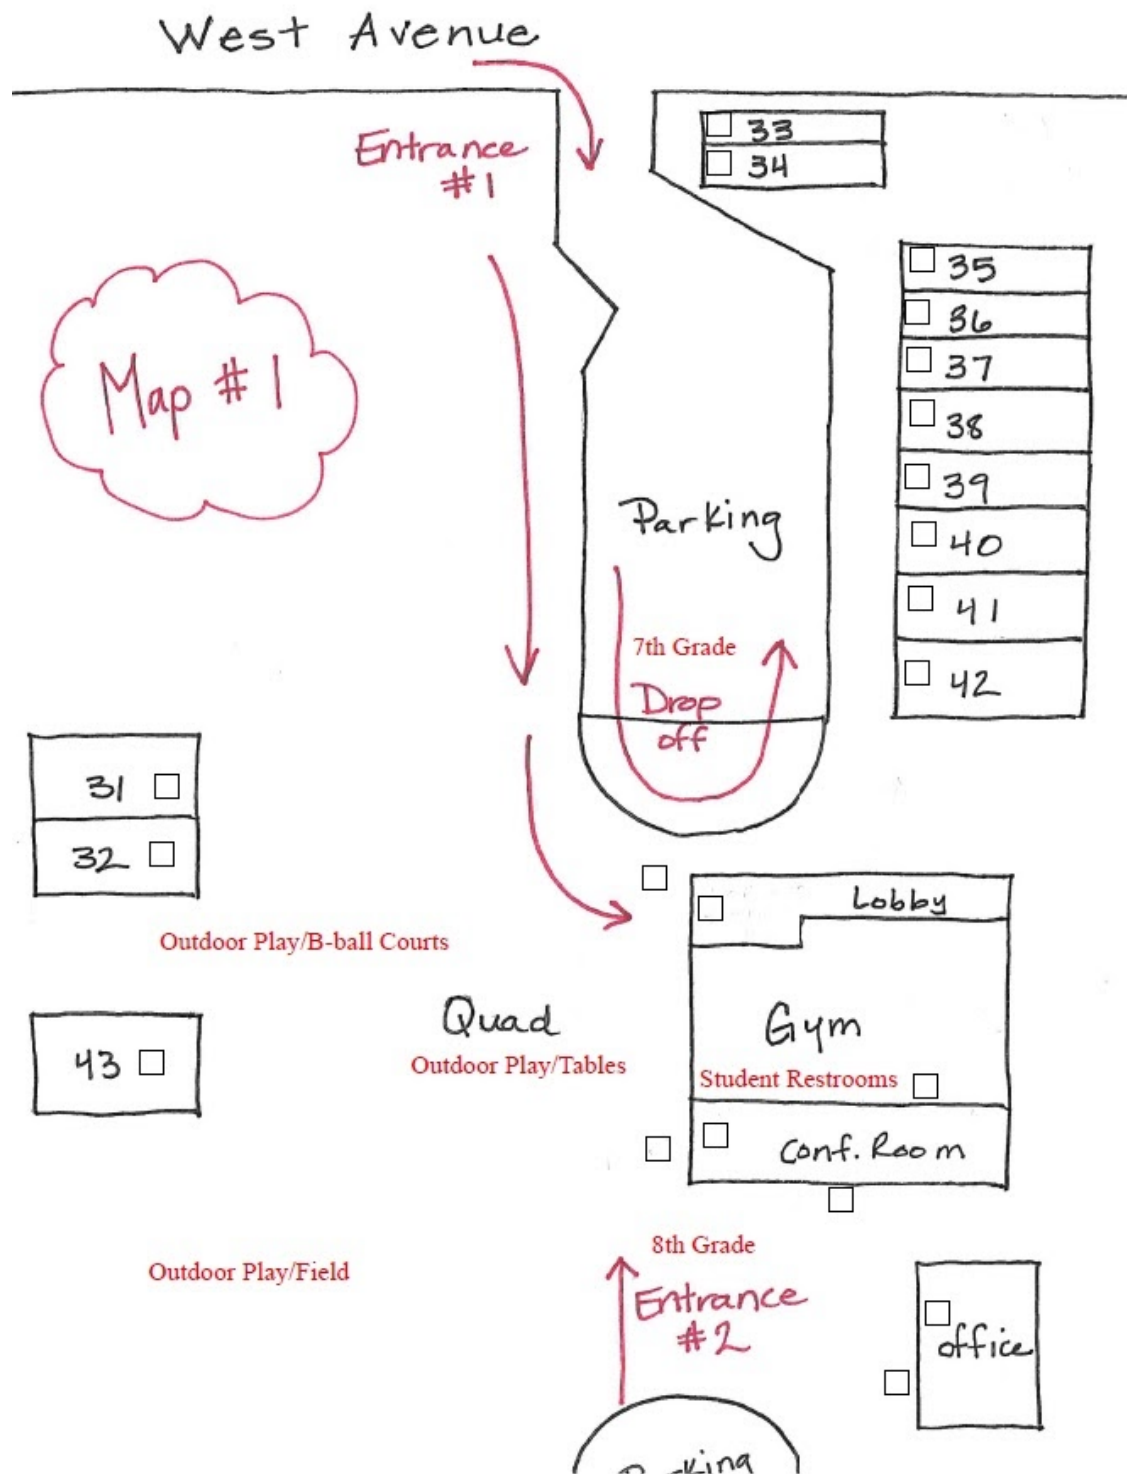 West Avenue
Entrance
#1
33
34
35
36
37
38
39
40
41
42
Map #1
Parking
7th Grade
Drop
off
31
32
Lobby
Outdoor Play/B-ball Courts
Quad
Gym
43
Outdoor Play/Tables
Student Restrooms
Conf. Room
8th Grade
Outdoor Play/Field
Entrance
#2
office
Parking